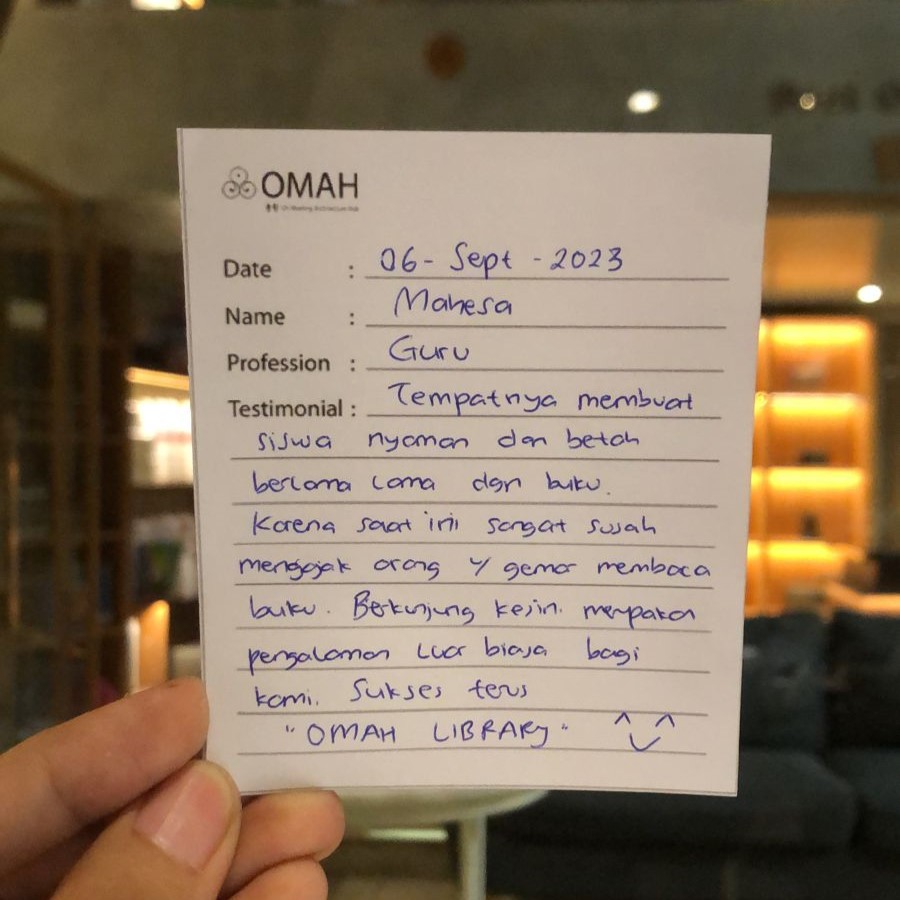 OMAH
Date : 06 - Sept - 2023
Name : Mahesa
Profession : Guru
Testimonial : Tempatnya membuat
siswa nyaman dan betah
berlama lama dgn buku.
Karena saat ini sangat susah
mengajak orang y/ gemar membaca
buku. Berkunjung kesini merupakan
pengalaman luar biasa bagi
kami. Sukses terus
"OMAH LIBRARY" ^‿^